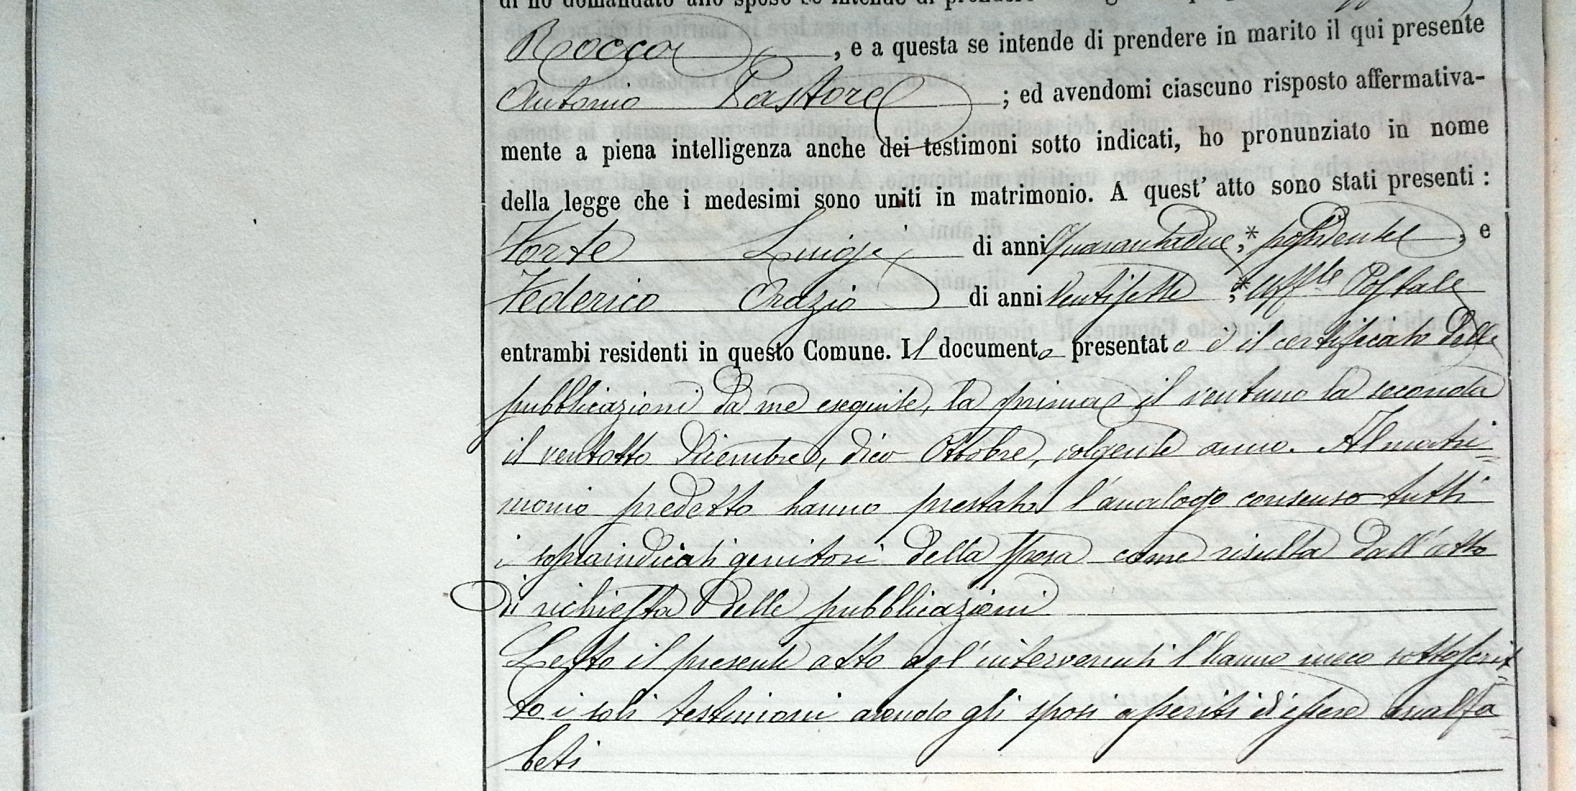 di ho domandato allo sposo se intende di prendere
Rocca, e a questa se intende di prendere in marito il qui presente
Antonio Pastore; ed avendomi ciascuno risposto affermativa-
mente a piena intelligenza anche dei testimoni sotto indicati, ho pronunziato in nome
della legge che i medesimi sono uniti in matrimonio. A quest' atto sono stati presenti:
Forte Luigi di anni quarantadue,* possidente, e
Federico Orazio di anni ventisette,* Uffle Postale
entrambi residenti in questo Comune. Il documento presentato è il certificato delle
pubblicazioni da me eseguite, la prima il ventuno la seconda
il ventotto Dicembre, dico Ottobre, volgente anno. Al matri=
monio predetto hanno prestato l'analogo consenso tutti
i sopraindicati genitori della sposa come risulta dall'atto
di richiesta delle pubblicazioni
Letto il presente atto agl'intervenuti l'hanno meco sottoscrit=
to i soli testimoni avendo gli sposi asseriti d'essere analfa=
beti